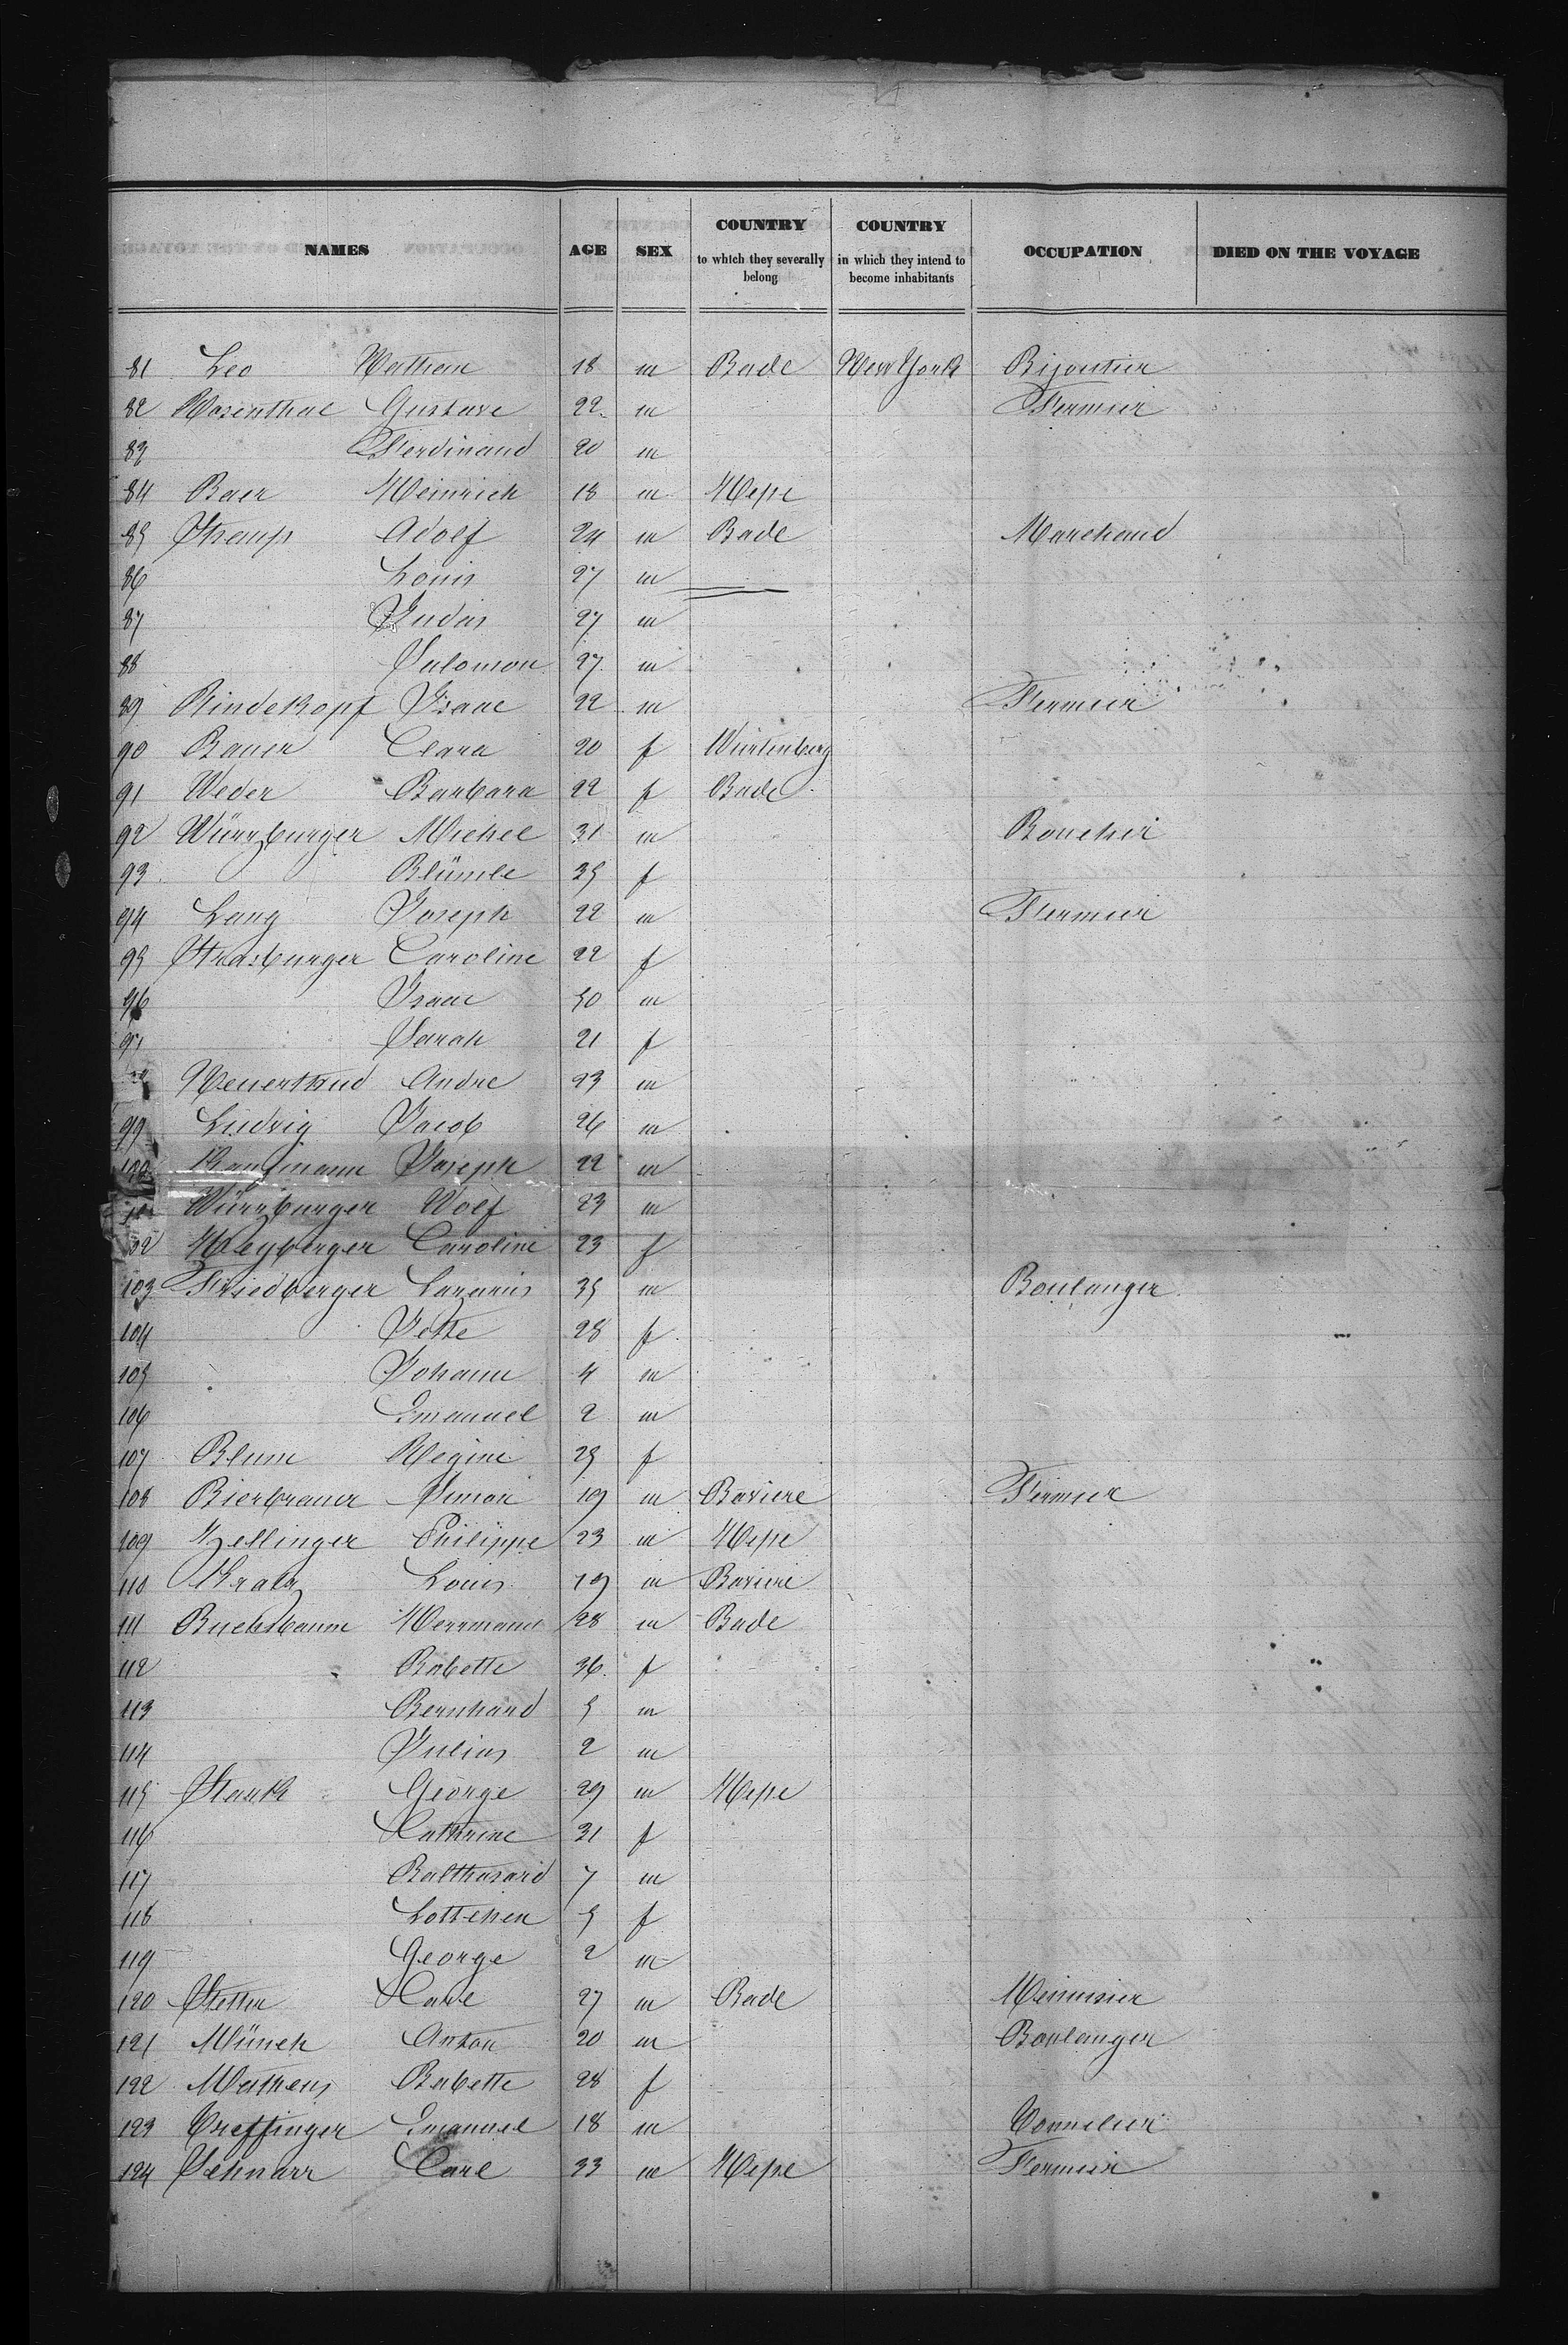 NAMES AGE SEX COUNTRY to which they severally belong COUNTRY in which they intend to become inhabitants OCCUPATION DIED ON THE VOYAGE
81 Leo Nathan 18 m Bade New York Bijoutier
82 Rosenthal Gustave 22 m Fermier
83 Ferdinand 20 m
84 Baer Heinrich 18 m Hesse
85 Adolf 24 m Bade Marchand
86 Louis 27 m
87 Judas 27 m
88 Salomon 27 m
89 Rindskopf Isaac 22 m Fermier
90 Bauer Clara 20 f Würtenberg
91 Weder Barbara 22 f Bade
92 Würzburger Michel 31 m Boucher
93 Blümle 35 f
94 Lang Joseph 22 m Fermier
95 Strasburger Caroline 22 f
96 Isaac 50 m
97 Sarah 21 f
Andre 23 m
99 Ludvig Jacob 26 m
100 Kaufmann Joseph 22 m
101 Würzburger Wolf 23 m
102 Heyberger Caroline 23 f
103 Friedberger Lazarus 35 m Boulanger
104 Jette 28 f
105 Johann 4 m
106 Emanuel 2 m
107 Blum Regine 25 f
108 Bierbrauer Simon 19 m Baviere Fermier
109 Zellinger Philippe 23 m Hesse
110 Kratz Louis 19 m Baviere
111 Buchsbaum Herrmann 28 m Bade
112 Babette 36 f
113 Bernhard 5 m
114 Julius 2 m
115 Stark George 29 m Hesse
116 Cathrine 31 f
117 Balthasard 7 m
118 Lottchen 5 f
119 George 2 m
120 Stetter Carl 27 m Bade Menuisier
121 Münch Anton 20 m Boulanger
122 Matheus Babette 28 f
123 Emanuel 18 m Tonnelier
124 Schnarr Carl 33 m Hesse Fermier